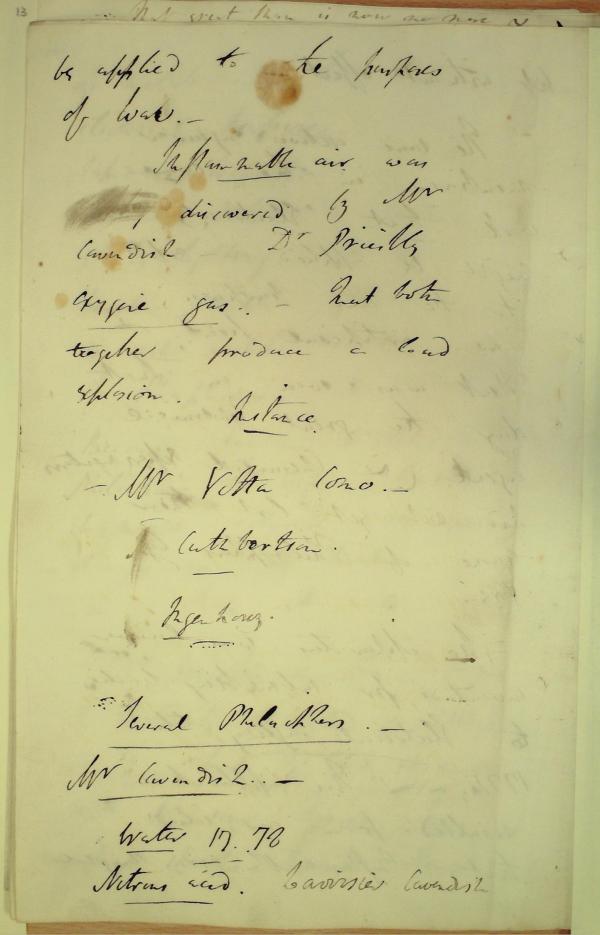 13
That great then is now no more
be applied to the purposes
of War. —
Inflammable air was
discovered by Mr
Cavendish Dr Priestly
oxygene gas. — That both
together produce a loud
explosion.
Instance.
— Mr Volta Como. —
Cuthbertson.
Ingenhouz.
Several Philosophers. —
Mr Cavendish. —
Water 17.78
Nitrous acid. Lavoisier Cavendish